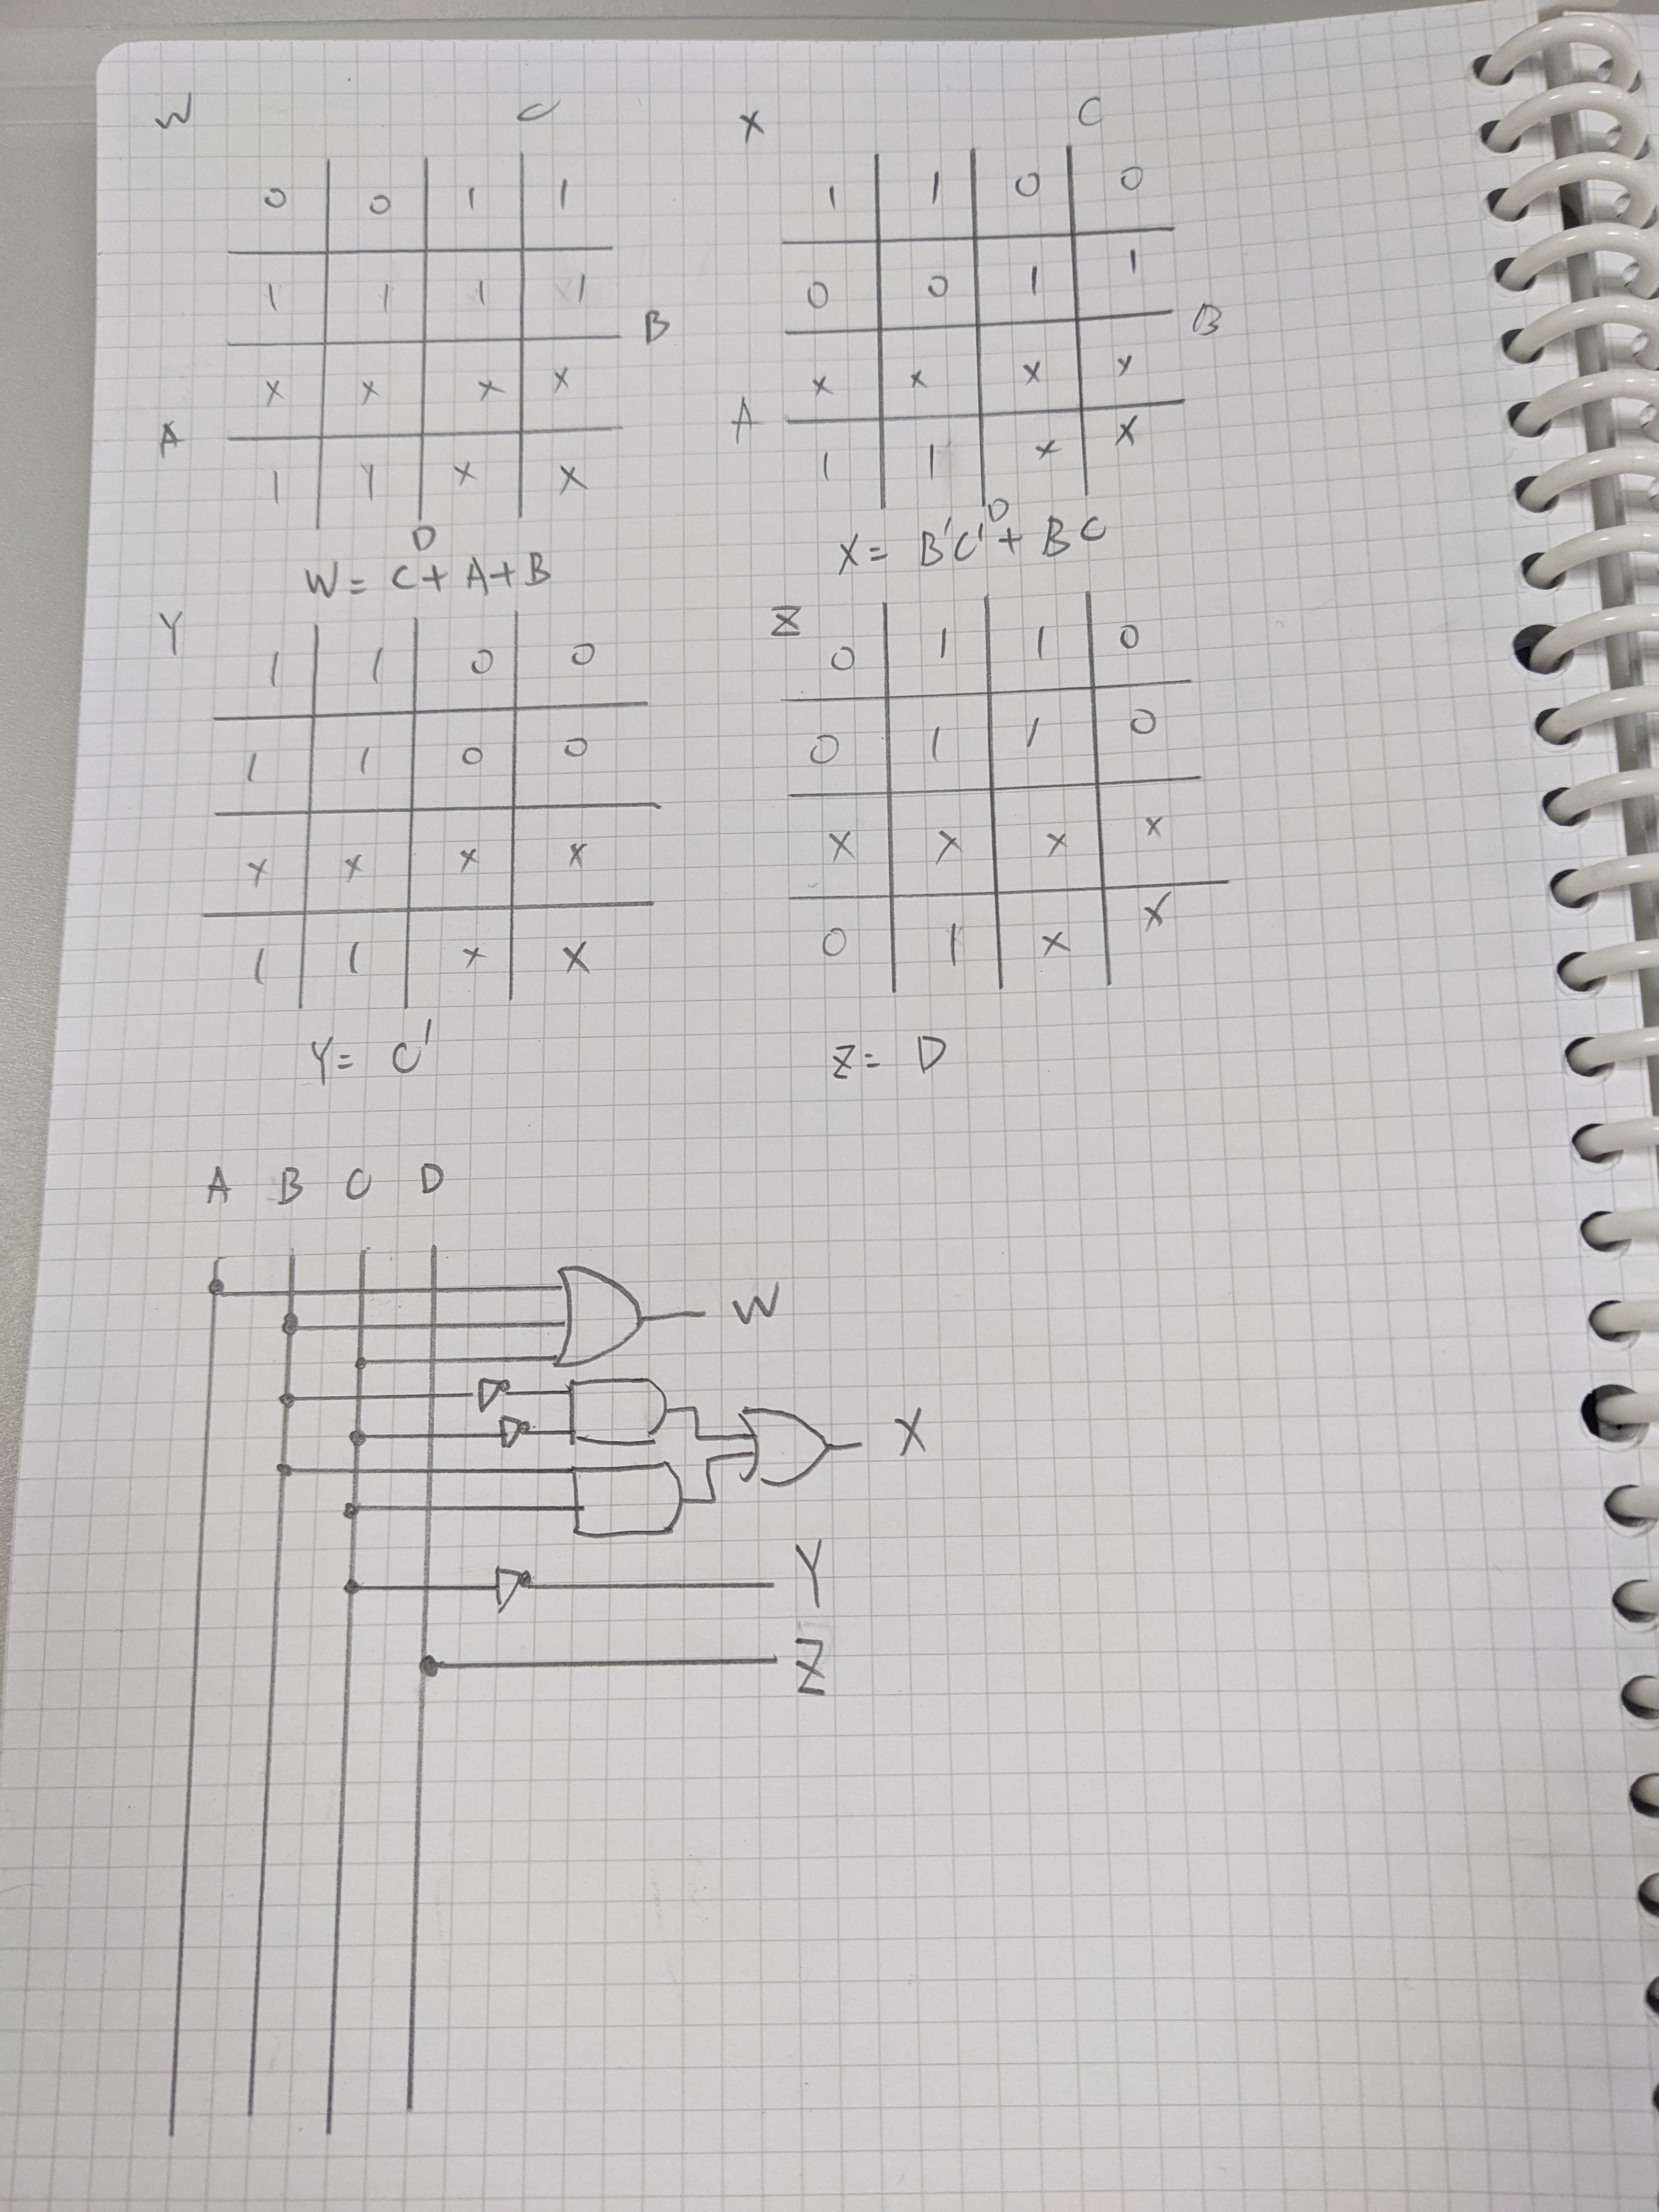 W C
0 0 1 1
1 1 1 1
B
x x x x
A
1 1 x x
D
W = C + A + B
X C
1 1 0 0
0 0 1 1
B
x x x x
A
1 1 x x
D
X = B'C' + BC
Y
1 1 0 0
1 1 0 0
x x x x
1 1 x x
Y = C'
Z
0 1 1 0
0 1 1 0
x x x x
0 1 x x
Z = D
A B C D
W
X
Y
Z